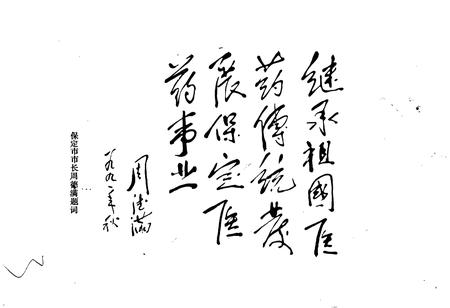 继承祖國医
药傳統发
展保定医
药事业
周德满
一九九一年秋
保定市市长周德满题词